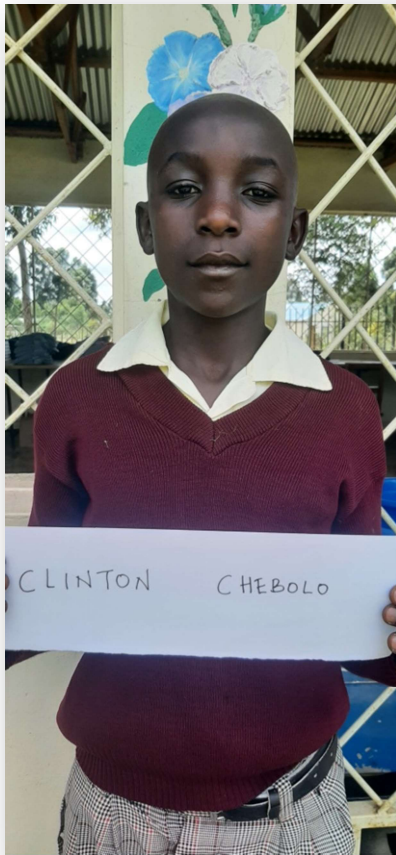 CLINTON CHEBOLO